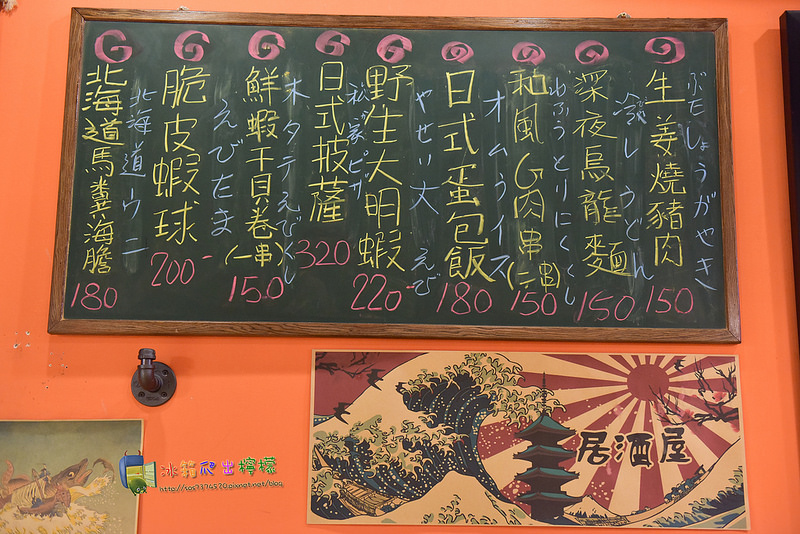 生姜燒豬肉
ぶたしょうがやき
150
深夜烏龍麵
冷しうどん
150
和風G肉串(二串)
わふうとりにくくし
150
日式蛋包飯
オムライス
180
野生大明蝦
やせい大えび
220-
日式披薩
320
鮮蝦干貝卷(一串)
ホタテえびくし
150
脆皮蝦球
えびたま
200-
北海道馬糞海膽
北海道ウニ
180
居酒屋
冰箱爬出檸檬